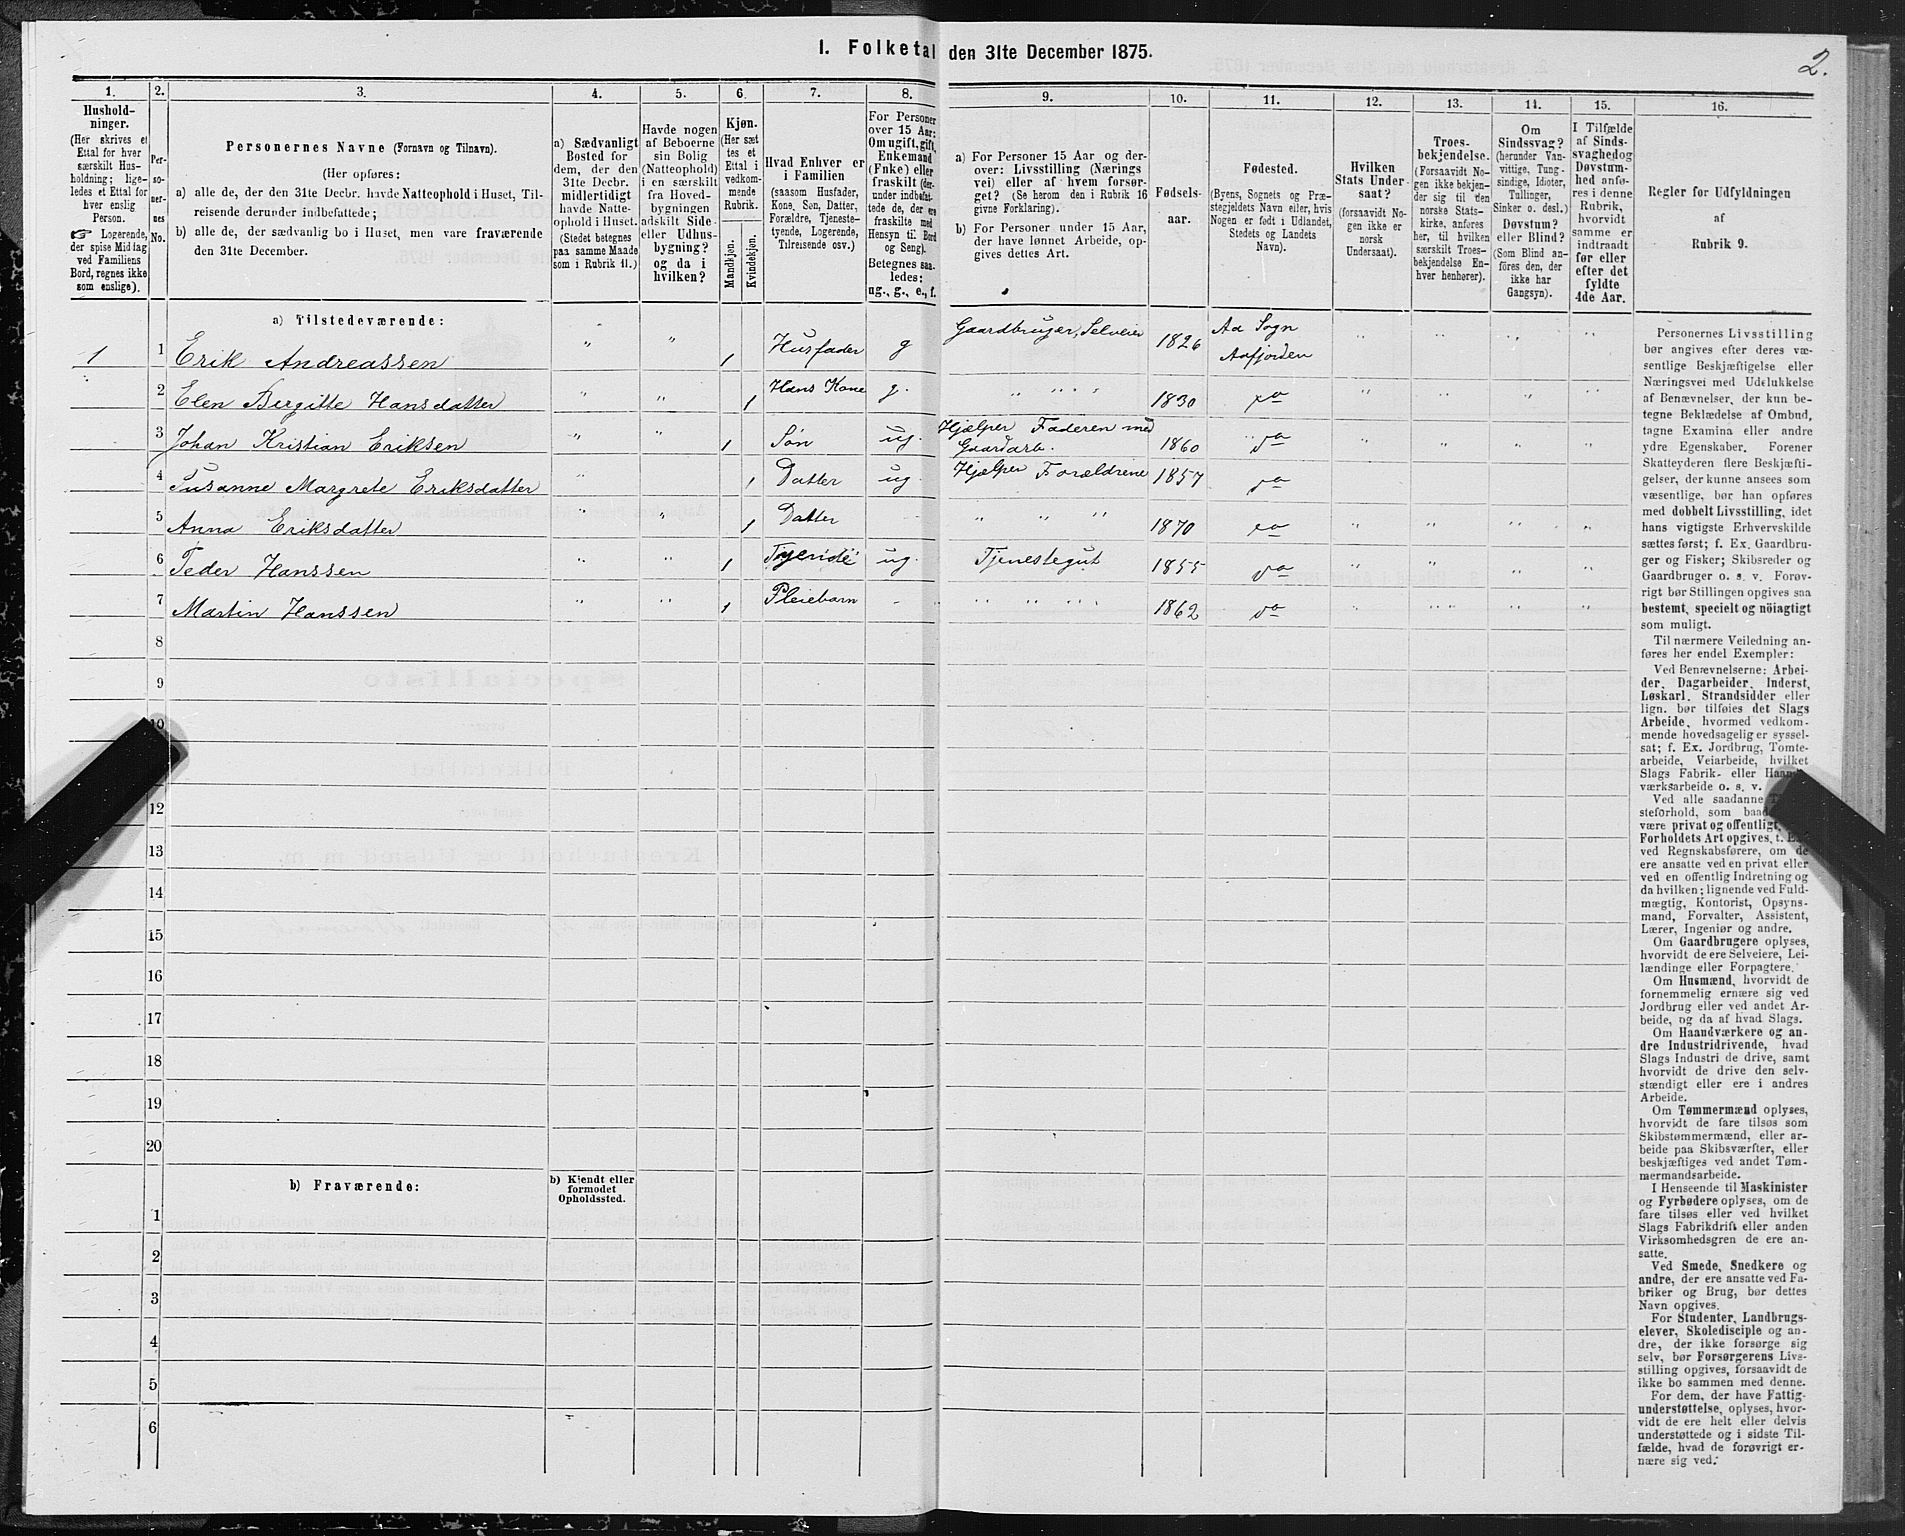 1. Folketal den 31te December 1875.
2.
1.
Hushold-
ninger.
(Her skrives et
Ettal for hver
særskilt Hus-
holdning; lige-
ledes et Ettal for
hver enslig
Person.
☞ Logerende,
der spise Middag
ved Familiens
Bord, regnes ikke
som enslige).
2.
Per-
so-
ner-
nes
No.
3.
Personernes Navne (Fornavn og Tilnavn).
(Her opføres:
a) alle de, der den 31te Decbr. havde Natteophold i Huset, Til-
reisende derunder indbefattede;
b) alle de, der sædvanlig bo i Huset, men vare fraværende
den 31te December.
4.
a) Sædvanligt
Bosted for
dem, der den
31te Decbr.
midlertidigt
havde Natte-
ophold i Huset.
(Stedet betegnes
paa samme Maade
som i Rubrik 11.)
5.
Havde nogen
af Beboerne
sin Bolig
(Natteophold)
i en særskilt
fra Hoved-
bygningen
adskilt Side-
eller Udhus-
bygning?
og da i
hvilken?
6.
Kjøn.
(Her sæt
tes et
Ettal i
vedkom-
mende
Rubrik.
Mandkjøn.
Kvindekjøn.
7.
Hvad Enhver er
i Familien
(saasom Husfader,
Kone, Søn, Datter,
Forældre, Tjeneste-
tyende, Logerende,
Tilreisende osv.)
8.
For Personer
over 15 Aar:
Om ugift, gift,
Enkemand
(Enke) eller
fraskilt (der-
under indbefat-
tede de, der ere
fraskilte med
Hensyn til Bord
og Seng).
Betegnes saa-
ledes:
ug., g., e., f.
9.
a) For Personer 15 Aar og der-
over: Livsstilling (Nærings
vei) eller af hvem forsør-
get? (Se herom den i Rubrik 16
givne Forklaring).
b) For Personer under 15 Aar,
der have lønnet Arbeide, op-
gives dettes Art.
10.
Fødsels-
aar.
11.
Fødested.
(Byens, Sognets og Præ-
stegjeldets Navn eller, hvis
Nogen er født i Udlandet,
Stedets og Landets
Navn).
12.
Hvilken
Stats Under-
saat?
(forsaavidt No-
gen ikke er
norsk
Undersaat).
13.
Troes-
bekjendelse.
(Forsaavidt No-
gen ikke bekjen-
der sig til den
norske Stats-
kirke, anføres
her, til hvilken
særskilt Troes-
bekjendelse En-
hver henhører).
14.
Om
Sindssvag?
(herunder Van-
vittige, Tung-
sindige, Idioter,
Tullinger,
Sinker o. desl.)
Døvstum?
eller Blind?
(Som Blind an-
føres den, der
ikke har
Gangsyn).
15.
I Tilfælde
af Sinds-
svaghed og
Døvstum-
hed anfø-
res i denne
Rubrik,
hvorvidt
samme er
indtraadt
før eller
efter det
fyldte
4de Aar.
16.
Regler for Udfyldningen
af
Rubrik 9.
a) Tilstedeværende:
1 1 Erik Andreassen " " 1 Husfader g Gaardbruger, Selveier 1826 Aa Sogn Aafjorden " " " "
2 Elen Bergitte Hansdatter " " 1 Hans Kone g. " " " " 1830 do " " " "
3 Johan Kristian Eriksen " " 1 Søn ug. Hjælper Faderen med Gaardarb. 1860 do " " " "
4 Susanne Margrete Eriksdatter " " 1 Datter ug. Hjælper Forældrene 1857 do " " " "
5 Anna Eriksdatter " " 1 Datter - " " " 1870 do " " " "
6 Peder Hanssen " " 1 Tyende ug. Tjenestegut 1855 do " " " "
7 Martin Hanssen " " 1 Pleiebarn - " " " " 1862 do " " " "
8
9
10
12
13
14
15
16
17
18
19
20
b) Fraværende:
b) Kjendt eller
formodet
Opholdssted.
1
2
3
4
5
6
Personernes Livsstilling
bør angives efter deres væ-
sentlige Beskjæftigelse eller
Næringsvei med Udelukkelse
af Benævnelser, der kun be-
tegne Beklædelse af Ombud,
tagne Examina eller andre
ydre Egenskaber. Forener
Skatteyderen flere Beskjæfti-
gelser, der kunne ansees som
væsentlige, bør han opføres
med dobbelt Livsstilling, idet
hans vigtigste Erhvervskilde
sættes først; f. Ex. Gaardbru-
ger og Fisker; Skibsreder og
Gaardbruger o. s. v. Forøv-
rigt bør Stillingen opgives saa
bestemt, specielt og nöiagtigt
som muligt.
Til nærmere Veiledning an-
føres her endel Exempler:
Ved Benævnelserne: Arbei-
der, Dagarbeider, Inderst,
Løskarl, Strandsidder eller
lign. bør tilføies det Slags
Arbeide, hvormed vedkom-
mende hovedsagelig er syssel-
sat; f. Ex. Jordbrug, Tomte-
arbeide, Veiarbeide, hvilket
Slags Fabrik- eller Haand-
værksarbeide o. s. v.
Ved alle saadanne
steforhold, som baade
være privat og offentligt,
Forholdets Art opgives, t. Ex.
ved Regnskabsførere, om de
ere ansatte ved en privat eller
ved en offentlig Indretning og
da hvilken; lignende ved Fuld-
mægtig, Kontorist, Opsyns-
mand, Forvalter, Assistent,
Lærer, Ingeniør og andre.
Om Gaardbrugere oplyses,
hvorvidt de ere Selveiere, Lei-
lændinge eller Forpagtere.
Om Husmænd, hvorvidt de
fornemmelig ernære sig ved
Jordbrug eller ved andet Ar-
beide, og da af hvad Slags.
Om Haandværkere og an-
dre Industridrivende, hvad
Slags Industri de drive, samt
hvorvidt de drive den selv-
stændigt eller ere i andres
Arbeide.
Om Tømmermænd oplyses,
hvorvidt de fare tilsøs som
Skibstømmermænd, eller ar-
beide paa Skibsværfter, eller
beskjæftiges ved andet Tøm-
mermandsarbeide.
I Henseende til Maskinister
og Fyrbødere oplyses, om de
fare tilsøs eller ved hvilket
Slags Fabrikdrift eller anden
Virksomhedsgren de ere an-
satte.
Ved Smede, Snedkere og
andre, der ere ansatte ved Fa-
briker og Brug, bør dettes
Navn opgives.
For Studenter, Landbrugs-
elever, Skoledisciple og an-
dre, der ikke forsørge sig
selv, bør Forsørgerens Livs-
stilling opgives, forsaavidt de
ikke bo sammen med denne.
For dem, der have Fattig-
understøttelse, oplyses, hvor-
vidt de ere helt eller delvis
understøttede og i sidste Til-
fælde, hvad de forøvrigt er-
nære sig ved.